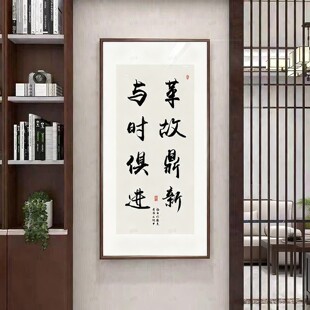 革故鼎新
与时俱进